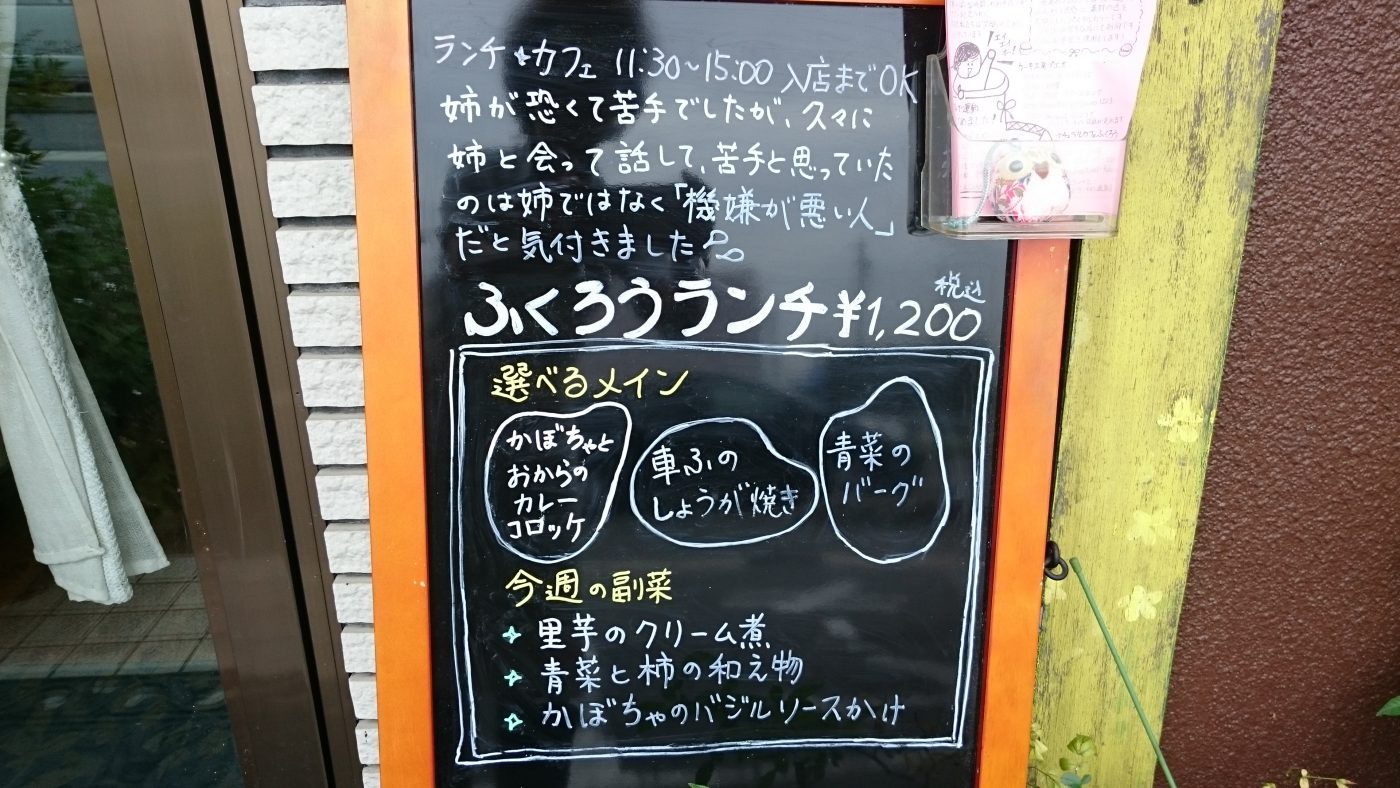 ランチ✦カフェ 11:30~15:00 入店までOK
姉が恐くて苦手でしたが、久々に
姉と会って話して、苦手と思っていた
のは姉ではなく「機嫌が悪い人」
だと気付きました
ふくろうランチ ¥1,200 税込
選べるメイン
かぼちゃと
おからの
カレー
コロッケ
車ふの
しょうが焼き
青菜の
バーグ
今週の副菜
✧ 里芋のクリーム煮
✧ 青菜と柿の和え物
✧ かぼちゃのバジルソースかけ